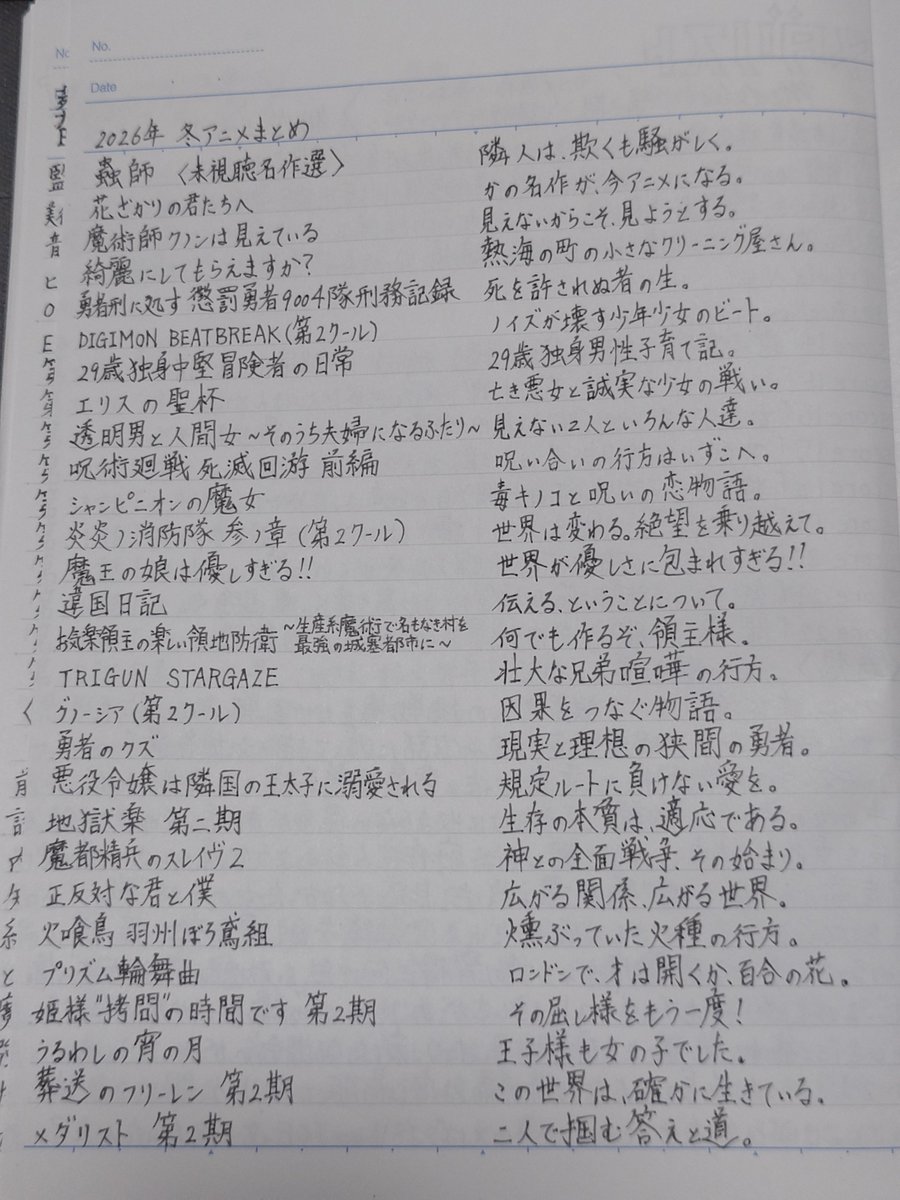 No.
Date
2026年 冬アニメまとめ
蟲師 〈未視聴名作選〉 隣人は、欺くも騒がしく。
花ざかりの君たちへ かの名作が、今アニメになる。
魔術師クノンは見えている 見えないからこそ、見ようとする。
綺麗にしてもらえますか? 熱海の町の小さなクリーニング屋さん。
勇者刑に処す 懲罰勇者9004隊刑務記録 死を許されぬ者の生。
DIGIMON BEATBREAK(第2クール) ノイズが壊す少年少女のビート。
29歳独身中堅冒険者の日常 29歳独身男性子育て記。
エリスの聖杯 亡き悪女と誠実な少女の戦い。
透明男と人間女~そのうち夫婦になるふたり~ 見えない2人といろんな人達。
呪術廻戦 死滅回游 前編 呪い合いの行方はいずこへ。
シャンピニオンの魔女 毒キノコと呪いの恋物語。
炎炎ノ消防隊 参ノ章 (第2クール) 世界は変わる。絶望を乗り越えて。
魔王の娘は優しすぎる!! 世界が優しさに包まれすぎる!!
違国日記 伝える、ということについて。
お気楽領主の楽しい領地防衛 ~生産系魔術で名もなき村を最強の城塞都市に~ 何でも作るぞ、領主様。
TRIGUN STARGAZE 壮大な兄弟喧嘩の行方。
グノーシア(第2クール) 因果をつなぐ物語。
勇者のクズ 現実と理想の狭間の勇者。
悪役令嬢は隣国の王太子に溺愛される 規定ルートに負けない愛を。
地獄楽 第二期 生存の本質は、適応である。
魔都精兵のスレイヴ2 神との全面戦争、その始まり。
正反対な君と僕 広がる関係、広がる世界。
火喰鳥 羽州ぼろ鳶組 燻ぶっていた火種の行方。
プリズム輪舞曲 ロンドンで、才は開くか、百合の花。
姫様"拷問"の時間です 第2期 その屈し様をもう一度!
うるわしの宵の月 王子様も女の子でした。
葬送のフリーレン 第2期 この世界は、確かに生きている。
メダリスト 第2期 二人で掴む答えと道。